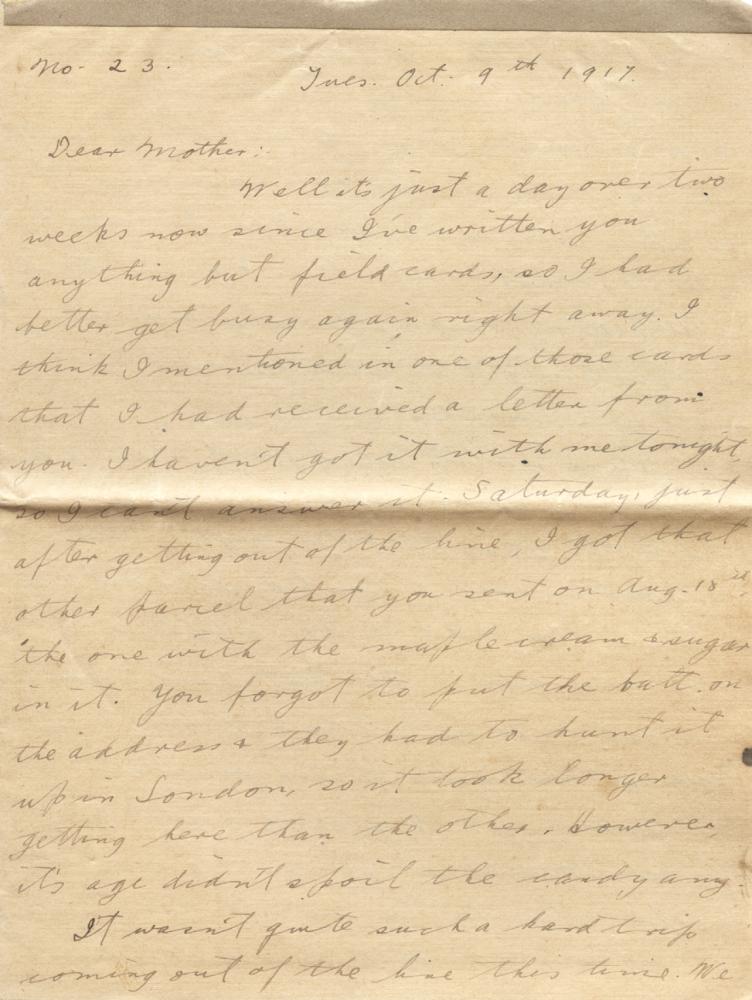 No. 23.
Tues. Oct. 9th 1917.
Dear Mother:
Well it's just a day over two
weeks now since I've written you
anything but field cards, so I had
better get busy again right away. I
think I mentioned in one of those cards
that I had received a letter from
you. I haven't got it with me tonight,
so I can't answer it. Saturday, just
after getting out of the line, I got that
other parcel that you sent on Aug. 18th,
the one with the maple cream & sugar
in it. You forgot to put the batt. on
the address & they had to hunt it
up in London, so it took longer
getting here than the other. However,
it's age didn't spoil the candy any.
It wasn't quite such a hard trip
coming out of the line this time. We